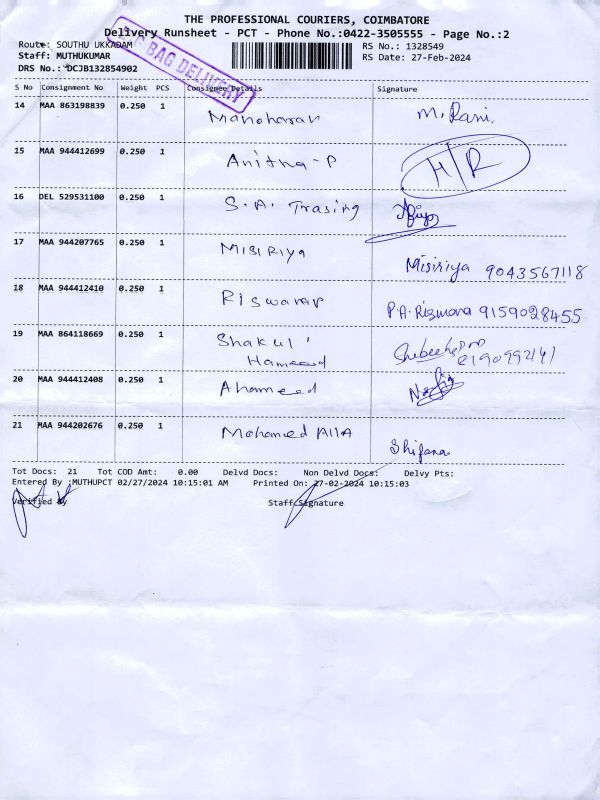 THE PROFESSIONAL COURIERS, COIMBATORE
Delivery Runsheet - PCT - Phone No.:0422-3505555 - Page No.:2
Route: SOUTHU UKKADAM
RS No.: 1328549
Staff: MUTHUKUMAR
RS Date: 27-Feb-2024
DRS No.: DCJB132854902
BAG DELIVERY
S No Consignment No Weight PCS Consignee Details Signature
14 MAA 863198839 0.250 1 Manoharan M. Rani.
15 MAA 944412699 0.250 1 Anitha-P H/R
16 DEL 529531100 0.250 1 S.A. Trasing
17 MAA 944207765 0.250 1 MISIRIYA Misiriya 9043567118
18 MAA 944412410 0.250 1 Riswarar P.A. Rizwana 9159028455
19 MAA 864118669 0.250 1 Shakul' Hameed
20 MAA 944412408 0.250 1 Ahameed
21 MAA 944202676 0.250 1 Mohamed Alla Shifana
Tot Docs: 21 Tot COD Amt: 0.00 Delvd Docs: Non Delvd Docs: Delvy Pts:
Entered By :MUTHUPCT 02/27/2024 10:15:01 AM Printed On: 27-02-2024 10:15:03
Verified By Staff Signature